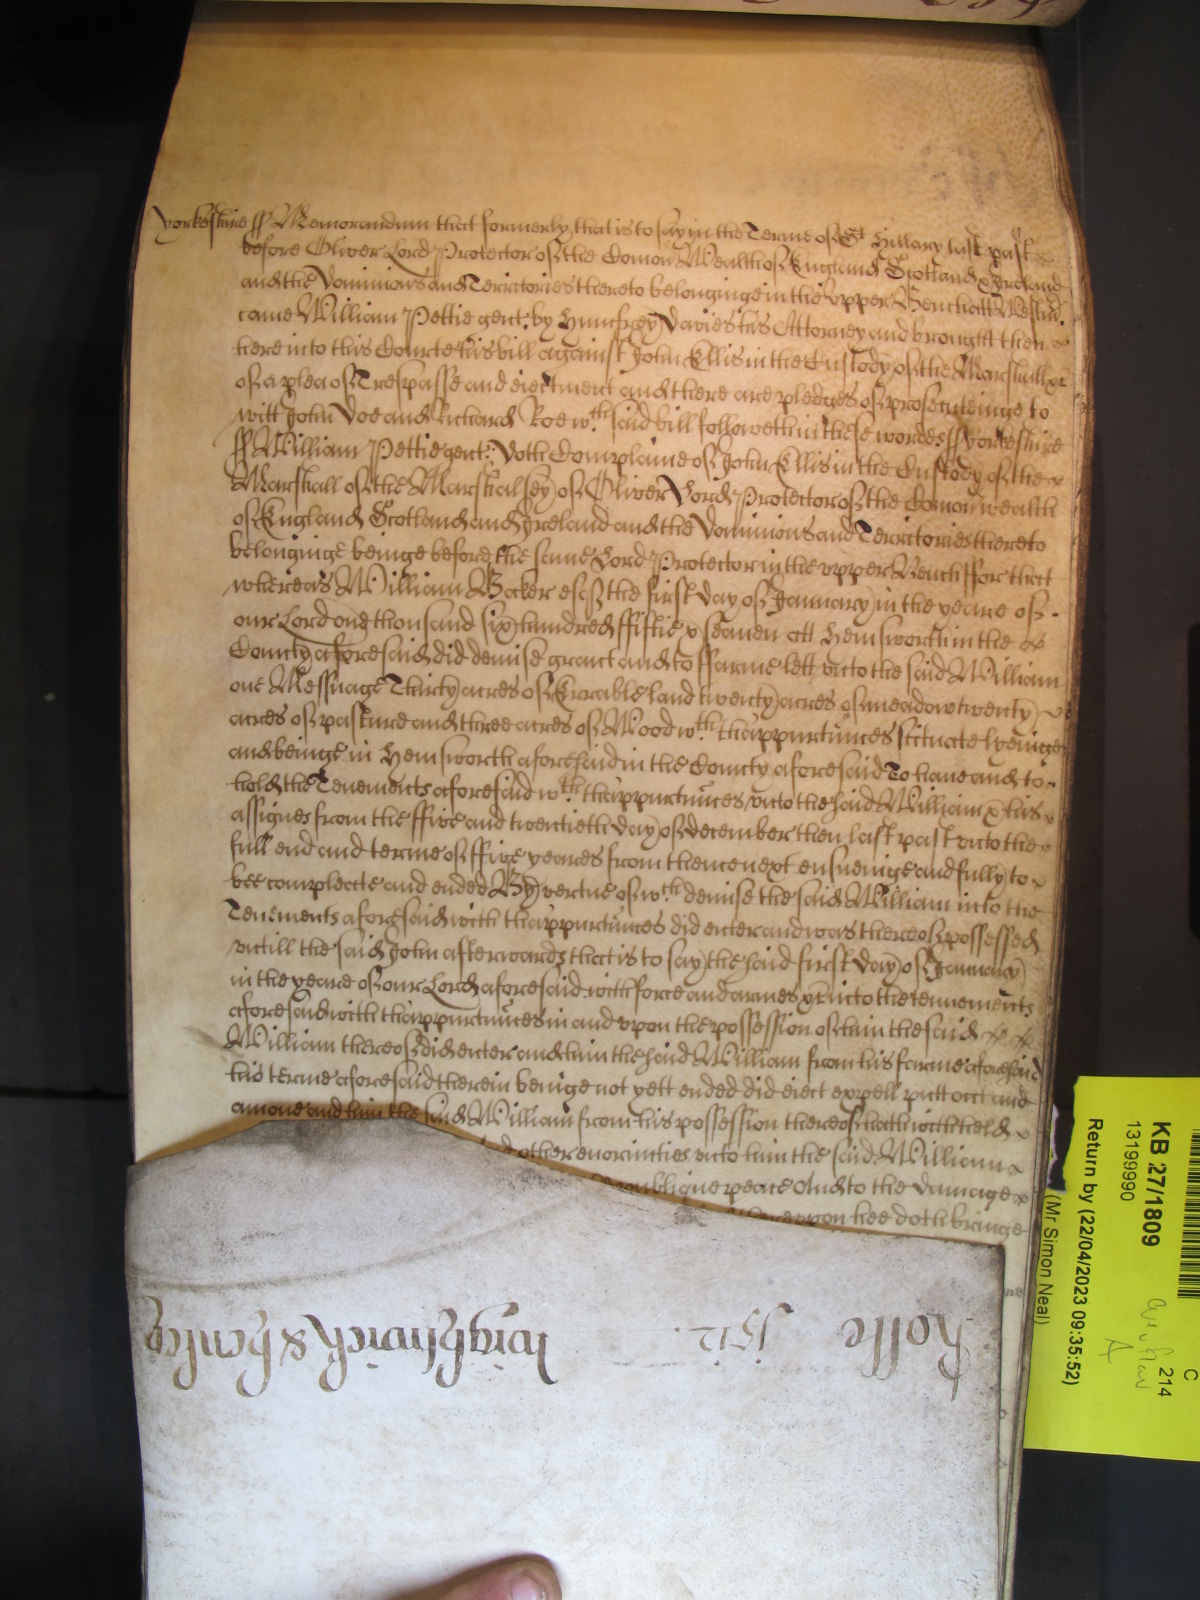 Yorkeshire ss Memorandum that formerly, that is to say in the Terme of St Hillary last past
before Oliver Lord Protector of the Comon Wealth of England Scotland & Ireland
and the Dominions and Territories thereto belonginge in the upper Bench att Westm̃
came William Pettie gent: by Humfrey Davies his Attorney and brought then
here into this Courte his bill against John Ellis in the Custody of the Marshall &c
of a plea of Trespasse and eiectment and there are pledges of prosecuteinge to
witt John Doe and Richard Roe wch said bill followeth in these wordes ss Yorkeshire
ss William Pettie gent: Doth Complaine of John Ellis in the Custody of the
Marshall of the Marshalsey of Oliver Lord Protector of the Comonwealth
of England Scotland and Ireland and the Dominions and Territories thereto
belonginge beinge before the same Lord Protector in the upper Bench ffor that
whereas William Becker esq the first day of January in the yeare of
our Lord one thousand six hundred ffiftie & seaven att Hemsworth in the
County aforesaid did demise grant and to ffarme lett unto the said William
one Messuage Thirty acres of Errable land twenty acres of meadow twenty
acres of pasture and three acres of Wood wth thappurtũces scituate lyeinge
and beinge in Hemsworth aforesaid in the County aforesaid To have and to
hold the Tenements aforesaid wth thappurtũces unto the said William & his
assignes from the ffive and twentieth day of december then last past unto the
full end and terme of ffive yeares from thence next ensueinge and fully to
bee compleate and ended By vertue of wch demise the said William into the
Tenements aforesaid with thappurtũces did enter and was thereof possessed
untill the said John afterwards that is to say the said first day of January
in the yeare of our Lord aforesaid with force and armes &c into the tennements
aforesaid with thappurtũces in and upon the possession of him the said
William thereof did enter and him the said William from his farme aforesaid
his terme aforesaid therein beinge not yett ended did eiect expell putt out and
amove and him the said William from his possession thereof hath withheld
other enormities unto him the said William
publique peace And to the damage
thereupon hee doth bringe
Rolle 1512.
wightwick & henley
KB 27/1809
13199990
Return by (22/04/2023 09:35:52)
(Mr Simon Neal)
C
214